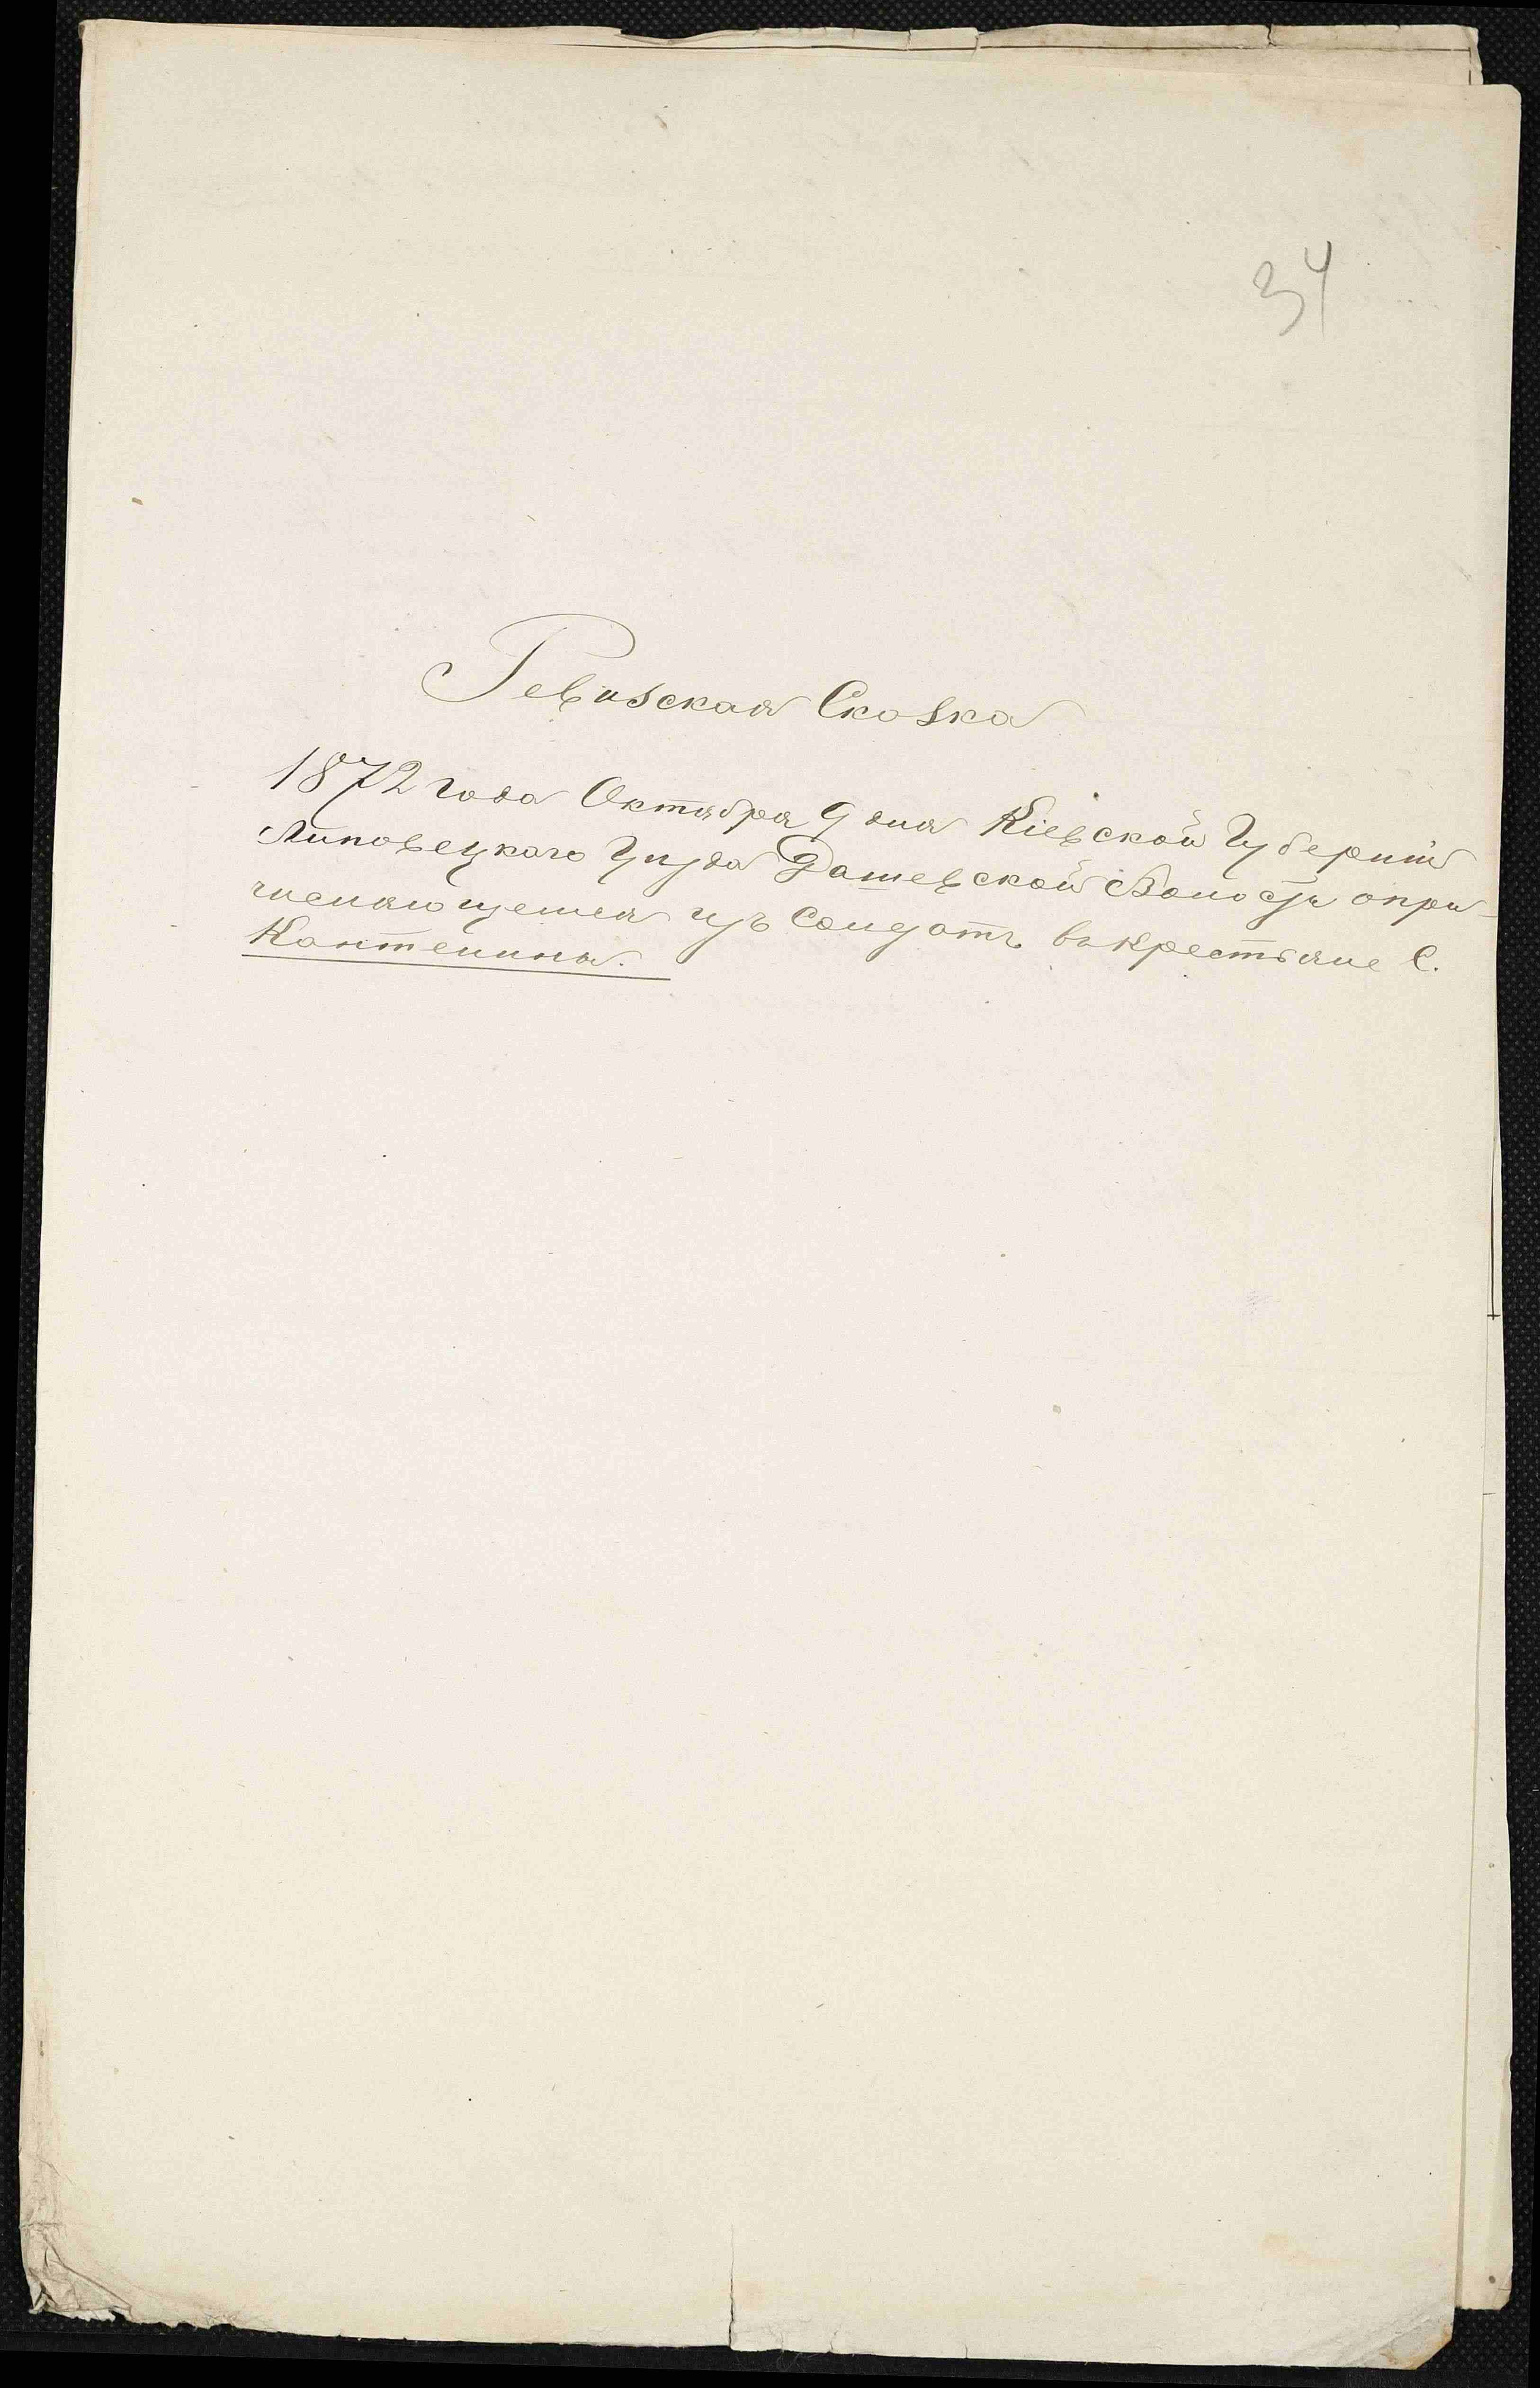 34
Ревизская Сказка
1872 года Октября 9 дня Кіевской Губерніи
Липовецкаго Уезда Дашевской Волости о при-
числяющемся изъ Солдатъ въ крестьяне С.
Кантелина.